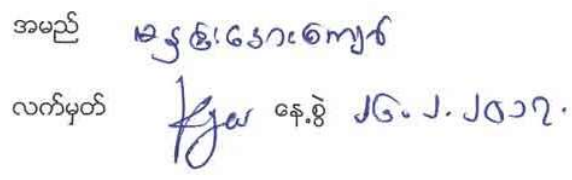 အမည် မနှင်းနောကျော်
လက်မှတ် နေ့စွဲ ၂၆.၂.၂၀၁၇.